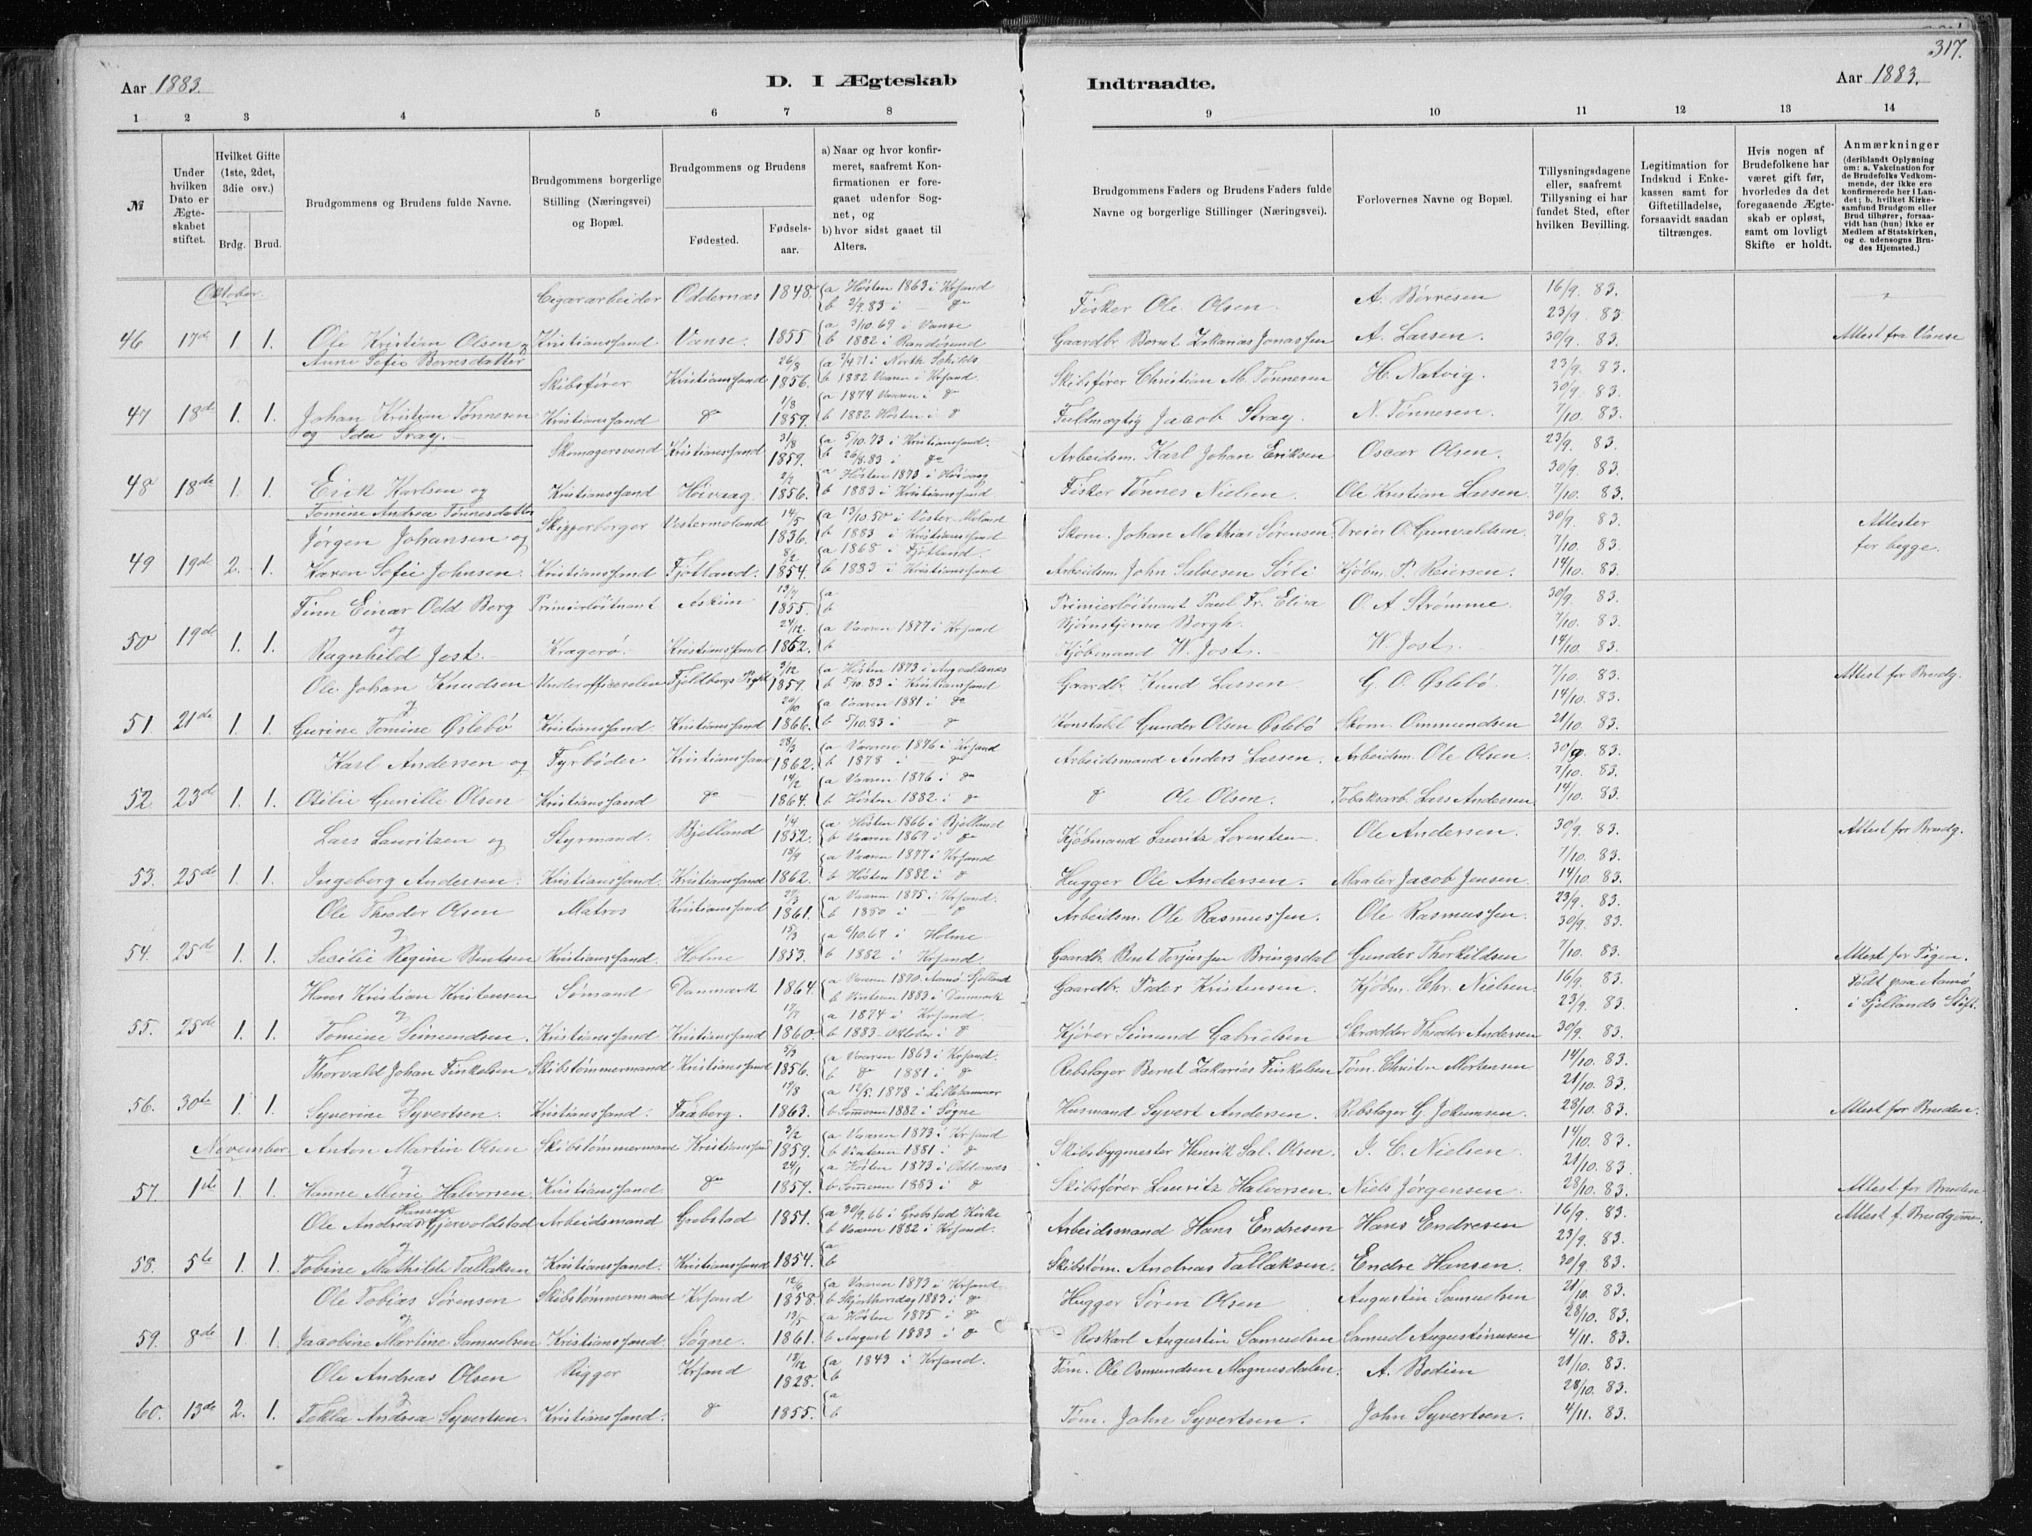 317.
Aar 1883.
D. I Ægteskab Indtraadte.
Aar 1883.
1 2 3 4 5 6 7 8 9 10 11 12 13 14
№
Under hvilken Dato er Ægteskabet stiftet.
Hvilket Gifte (1ste, 2det, 3die osv.)
Brdg. Brud.
Brudgommens og Brudens fulde Navne.
Brudgommens borgerlige Stilling (Næringsvei) og Bopæl.
Brudgommens og Brudens
Fødested.
Fødselsaar.
a) Naar og hvor konfirmeret, saafremt Konfirmationen er foregaaet udenfor Sognet, og
b) hvor sidst gaaet til Alters.
Brudgommens Faders og Brudens Faders fulde Navne og borgerlige Stillinger (Næringsvei).
Forlovernes Navne og Bopæl.
Tillysningsdagene eller, saafremt Tillysning ei har fundet Sted, efter hvilken Bevilling.
Legitimation for Indskud i Enkekassen samt for Giftetilladelse, forsaavidt saadan tiltrænges.
Hvis nogen af Brudefolkene har været gift før, hvorledes da det foregaaende Ægteskab er opløst, samt om lovligt Skifte er holdt.
Anmærkninger
(deriblandt Oplysning om: a. Vakcination for de Brudefolks Vedkommende, der ikke ere konfirmerede her i Landet; b. hvilket Kirkesamfund Brudgom eller Brud tilhører, forsaavidt han (hun) ikke er Medlem af Statskirken, og c. udensogns Brudes Hjemsted.)
Oktober. Cigararbeider Oddernæs 1848. a Høsten 1863 i Krsand b 2/9.83 i — do Fisker Ole Olsen A. Børresen 16/9. 83. 23/9. 83.
46 17de 1. 1. Ole Kristian Olsen og Kristianssand Vanse. 1855 a 3/10.69 i Vanse b 1882 i Randøsund Gaardbr. Bernt Zakarias Jonassen A. Lassen 30/9. 83. Attest fra Vanse
Anne Sofie Berntsdatter
Skibsfører Kristianssand 26/3 1856. b 1882 Vaaren i Krsand Skibsfører Christian M. Tønnesen H. Natvig. 23/9. 83. 30/9. 83.
47 18de 1. 1. Johan Kristian Tønnesen Kristianssand do 1/8 1859. a 1874 Vaaren i do b 1882 Høsten i do Fuldmægtig Jacob Stray N. Tønnesen. 7/10. 83.
og Ida Stray.
Skomagersvend Kristianssand 31/8 1859. a 5/10.73 i Kristianssand. b 26/8.83 i do Arbeidsm. Karl Johan Eriksen Oscar Olsen. 23/9. 83. 30/9. 83.
48 18de 1. 1. Erik Karlsen og Kristianssand Høivaag. 1856. a Høsten 1873 i Høivaag b 1883 i Kristianssand Fisker Tønnes Nielsen. Ole Kristian Lassen 7/10. 83.
Tomine Andrea Tønnesdatter
Jørgen Johansen og Skipperborger Vestermoland 14/5 1836. a 13/10.50 i Vester-Moland b 1883 i Kristianssand Skom. Johan Mathias Sørensen. Dreier O. Gunvaldsen 30/9. 83. 7/10. 83. Attester for begge.
49 19de 2. 1. Karen Sofie Johnsen. Kristianssand Fjotland. 8/2 1854. a 1868 i Fjotland. b 1883 i Kristianssand Arbeidsm. John Salvesen Sørli Kjøbm. P. Reiersen. 14/10. 83.
Finn Einar Odd Berg Primierløitnant Askim 13/7 1855. a b Primierløitnant Paul Fr. Elisa Bjørnstjerna Borgh. O. A. Strømme 30/9. 83. 7/10. 83.
50 19de 1. 1. og Ragnhild Jost. Kragerø. Kristianssand 24/12 1862. a Vaaren 1877 i Krsand b Kjøbmand W. Jost. W. Jost. 14/10. 83.
Ole Johan Knudsen 3/12 1859. a Høsten 1873 i b 5/10.83 i Kristianssand Gaardbr. Knud Lassen G. O. Øslebø 7/10. 83. 14/10. 83. Attest for Brudg.
51 21de 1. 1. Gurine Tomine Øslebø Kristianssand Kristianssand 20/10 1866. a Vaaren 1881 i do b 5/10.83 i — do Konstabl Gunder Olsen Øslebø Skom. Ommundsen 21/10. 83.
Karl Andersen og Fyrbøder Kristianssand 28/3 1862. a Vaaren 1876 i Krsand b 1878 i — do Arbeidsmand Anders Lassen. Arbeidsm. Ole Olsen. 30/9. 83. 7/10. 83.
52 23de 1. 1. Otilie Gunille Olsen Kristianssand do 14/2 1864. a Vaaren 1876 i do b Høsten 1882 i do do Ole Olsen. Tobaksarb. Lars Andersen 14/10. 83.
Lars Lauritzen og Styrmand. Bjelland 1/4 1852. a Høsten 1866 i Bjelland b Vaaren 1867 i do Kjøbmand Lauritz Lorentzen Ole Andersen. 30/9. 83. 7/10. 83. Attest for Brudg.
53. 25de 1. 1. Ingeborg Andersen. Kristianssand. Kristianssand 18/9 1862. a Vaaren 1877 i Krsand b Høsten 1882 i do Hugger Ole Andersen. Maaler Jacob Jensen 14/10. 83.
Ole Theodor Olsen Matros Kristianssand 27/3 1861. a Vaaren 1875 i Krsand. b 1880 i — do Arbeidsm. Ole Rasmussen. Ole Rasmussen 23/9. 83. 30/9. 83.
54. 25de 1. 1. Secilie Regine Bentsen Kristianssand. Holme 15/3 1853. a 6/10.67 i Holme b 1882 i Krsand. Gaardbr. Bent Terjussen Bringsdal Gunder Thorkildsen 7/10. 83. Attest for Pigen.
Hans Kristian Kristensen Sømand Danmark 1864. a Vaaren 1870. Aamø Sjelland b Vinteren 1883 i Danmark Gaardbr. Peder Kristensen. Kjøbm. Chr. Nielsen. 16/9. 83. 23/9. 83. Født paa Aamø i Sjellands Stift.
55. 25de 1. 1. Tomine Simundsen. Kristianssand. Kristianssand 17/7 1860. a 1874 i Krsand. b 1883. Oktober i do Kjører Simund Gabrielsen Skrædder Theodor Andersen 30/9. 83.
Thorvald Johan Finkelsen Skibstømmermand Kristianssand 5/3 1856. a Vaaren 1863 i Krsand. b do 1881 i do Rebslager Bernt Zakarias Finkelsen Tøm. Christen Mortensen 14/10. 83. 21/10. 83.
56. 30te 1. 1. Syverine Syvertsen. Kristianssand. Faaberg. 19/8 1863. a 12/5. 1878 i Lillehammer b Sommeren 1882 i Søgne Husmand Syvert Andersen. Rebslager G. Jokumsen. 28/10. 83. Attest for Bruden.
November Anton Martin Olsen Skibstømmermand Kristianssand 3/2 1859. a Vaaren 1873 i Krsand b Vinteren 1881 i do Skibsbygmester Henrik Sal. Olsen. I. C. Nielsen. 14/10. 83. 21/10. 83.
57. 1de 1. 1. Hanne Marie Halvorsen. Kristianssand. do 24/1 1857. a Høsten 1873 i Oddernæs b Sommeren 1883 i do Skibsfører Lauritz Halversen. Niels Jørgensen. 28/10. 83. Attest for Bruden
Ole Andreas Hansen Gjervoldstad Arbeidsmand Grebstad 1851. a 30/9. 66 i Grebstad Kirke b Vaaren 1882 i Krsand. Arbeidsmand Hans Endresen Hans Endresen 16/9. 83. 23/9. 83. Attest f. Brudgommen.
58. 5te 1. 1. Tobine Mathilde Tallaksen Kristianssand. Kristianssand 1854. a b Skibstøm. Andreas Tallaksen. Endre Hansen. 30/9. 83.
Ole Tobias Sørensen Skibstømmermand Krsand 12/6 1858. a Vaaren 1873 i Krsand b Skjærthorsdag 1883 i do Hugger Søren Olsen Augustin Samuelsen 21/10. 83. 28/10. 83.
59. 8de 1 1. Jacobine Martine Samuelsen Kristianssand. Søgne. 13/5 1861. a Høsten 1875 i do b August 1883 i do Roskarl Augustin Samuelsen Samuel Augustinusen 4/11. 83.
Ole Andreas Olsen Rigger Krsand 18/12 1828. a 1843 i Krsand. b Tøm. Ole Osmundsen Magnusdalen. A. Bodien 21/10. 83. 28/10. 83.
60. 13de 2. 1. Tekla Andrea Syvertsen. Kristianssand. do 1855. a b Tøm. John Syvertsen. John Syvertsen. 4/11. 83.